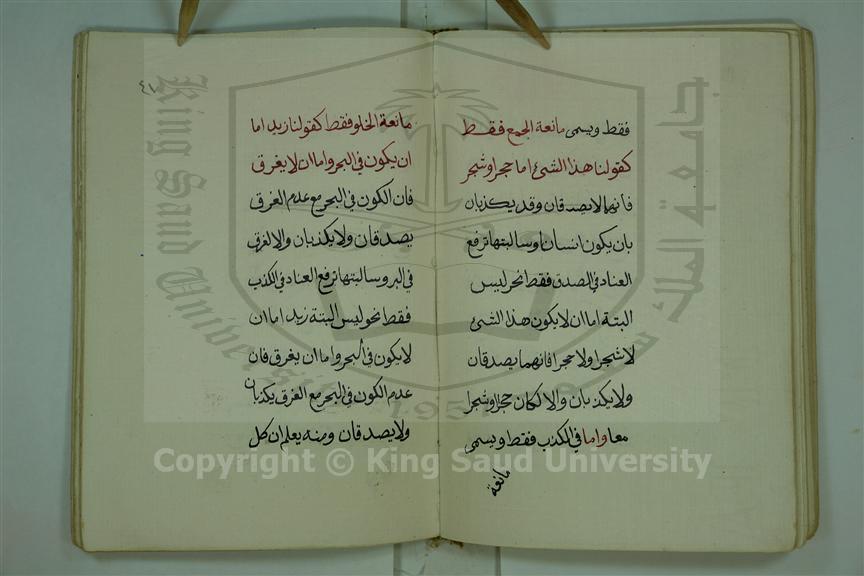 فقط ويسمى مانعة الجمع فقط
كقولنا هذا الشئ اما حجرا وشجر
فانهما لا يصدقان وقد يكذبان
بان يكون انسانا وسالبتها ترفع
العناد في الصدق فقط نحو ليس
البتة اما ان لا يكون هذا الشئ
لا شجرا ولا حجرا فانهما يصدقان
ولا يكذبان والا لكان حجرا وشجرا
معا واما في الكذب فقط ويسمى
مانعة
٤٧
مانعة الخلو فقط كقولنا زيد اما
ان يكون في البحر واما ان لا يغرق
فان الكون في البحر مع عدم الغرق
يصدقان ولا يكذبان والا لغرق
في البر وسالبتها ترفع العناد في الكذب
فقط نحو ليس البتة زيد اما ان
لا يكون في البحر واما ان يغرق فان
عدم الكون في البحر مع الغرق يكذبان
ولا يصدقان ومنه يعلم ان كل
King Saud University
جامعة الملك سعود
Copyright © King Saud University